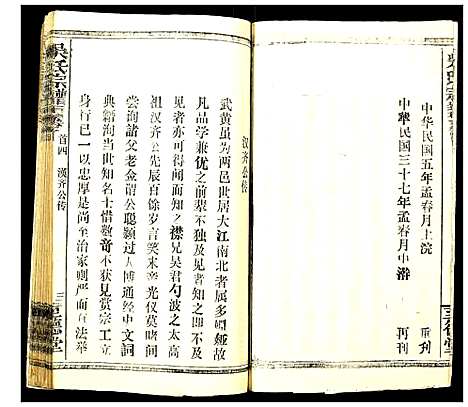 中华民国五年孟春月上浣 重刊
中华民国三十七年孟春月中澣 再刊
三
堂
汉齐公传
武黄虽为两邑世居大江南北者属多姻娅故
凡品学兼优之前辈不独及见者知之即不及
见者亦可得闻而知之襟兄吴君勺波之太高
祖汉齐公先辰百余岁言笑未亲光仪莫睹间
尝询诸父老佥谓公聪颖过人博通经史文词
典赡洵当世知名士惜数奇不获见赏宗工立
身行已一以忠厚是尚至治家则严而有法举
吴氏宗谱
首四 汉齐公传
三
堂